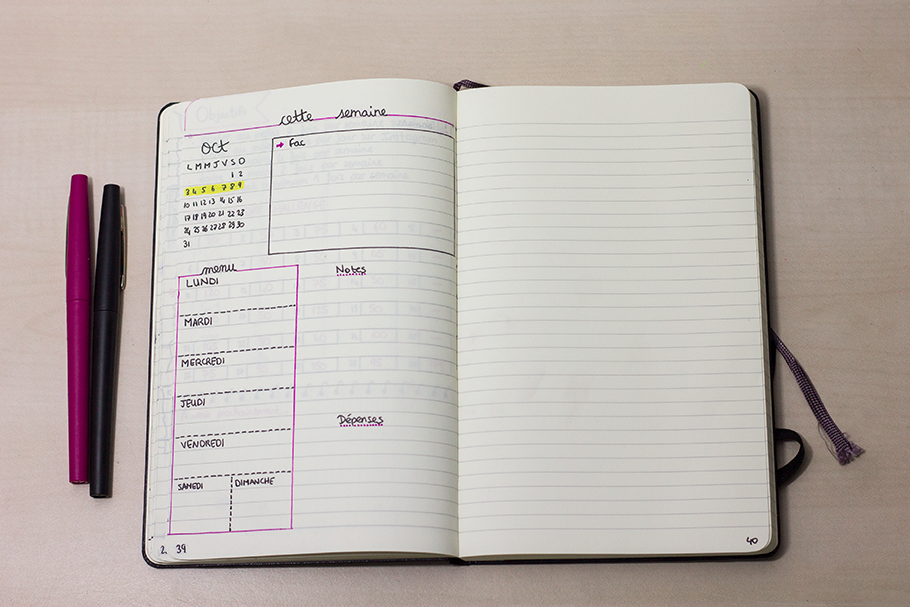 Objectifs
cette semaine
oct
L M M J V S D
1 2
3 4 5 6 7 8 9
10 11 12 13 14 15 16
17 18 19 20 21 22 23
24 25 26 27 28 29 30
31
→ Fac
menu
LUNDI
MARDI
MERCREDI
JEUDI
VENDREDI
SAMEDI
DIMANCHE
Notes
Dépenses
2 39
40